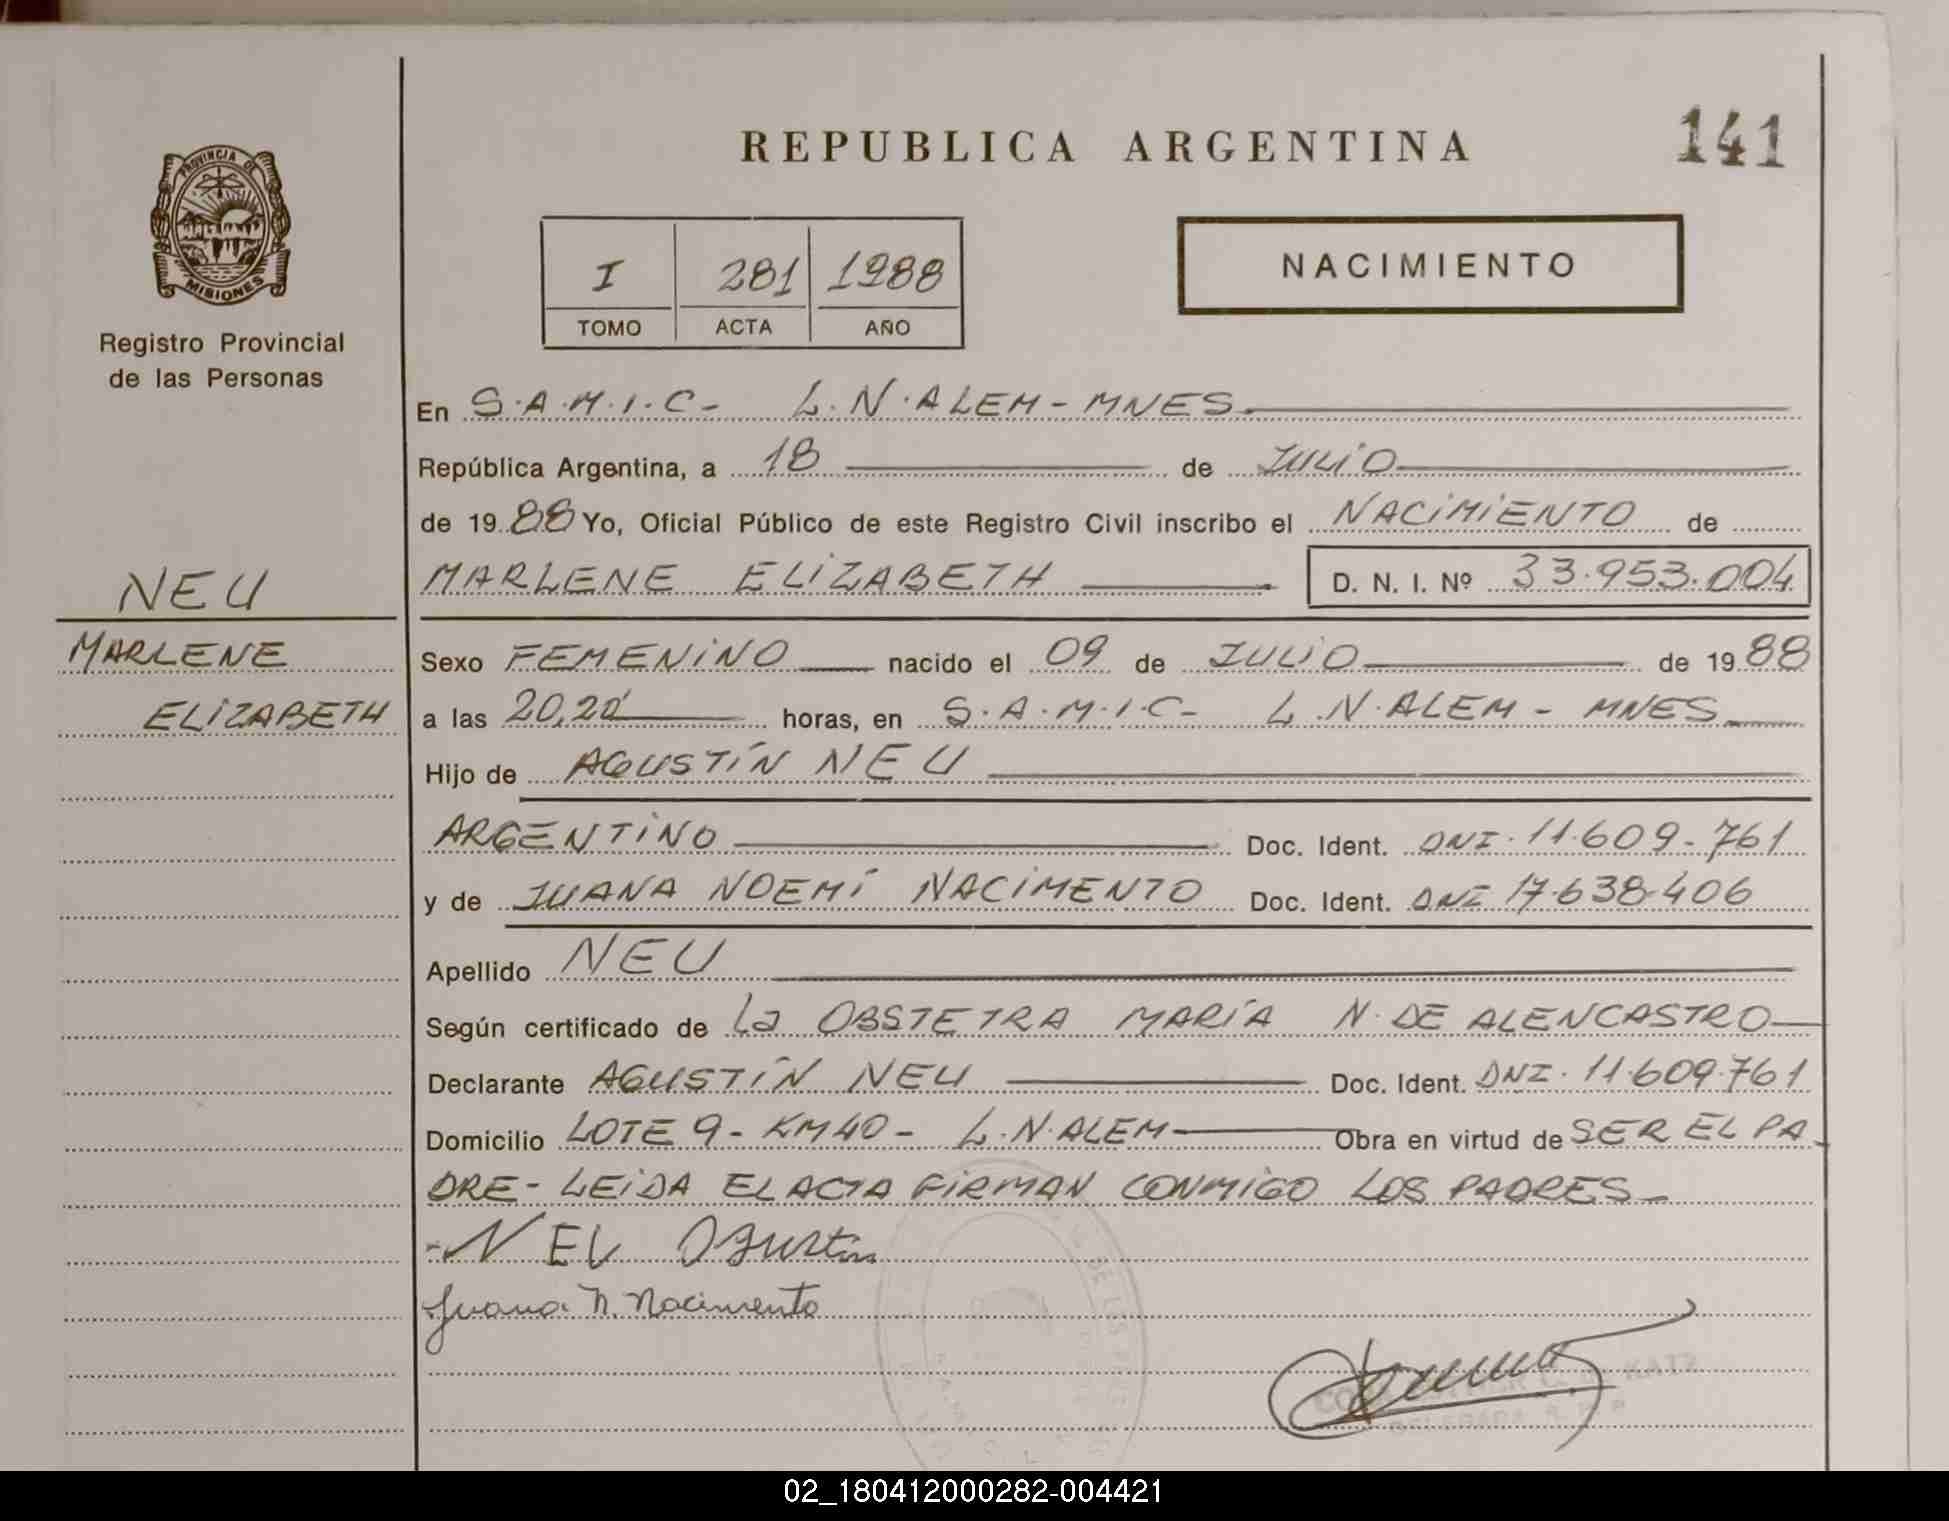 REPUBLICA ARGENTINA
141
PROVINCIA DE
MISIONES
Registro Provincial
de las Personas
I 281 1988
TOMO ACTA AÑO
NACIMIENTO
En S.A.M.I.C- L.N.ALEM-MNES.
República Argentina, a 18 de JULIO
de 1988 Yo, Oficial Público de este Registro Civil inscribo el NACIMIENTO de
MARLENE ELIZABETH D. N. I. Nº 33.953.004
NEU
MARLENE
ELIZABETH
Sexo FEMENINO nacido el 09 de JULIO de 1988
a las 20,20 horas, en S.A.M.I.C- L.N.ALEM - MNES
Hijo de AGUSTÍN NEU
ARGENTINO Doc. Ident. DNI. 11.609-761
y de JUANA NOEMÍ NACIMENTO Doc. Ident. DNI 17.638.406
Apellido NEU
Según certificado de la OBSTETRA MARÍA N. DE ALENCASTRO
Declarante AGUSTÍN NEU Doc. Ident. DNI. 11.609.761
Domicilio LOTE 9- KM40- L.N.ALEM Obra en virtud de SER EL PA
DRE- LEIDA EL ACTA FIRMAN CONMIGO LOS PADRES-
-NEU Agustin
Juana N. Nacimento
02_180412000282-004421